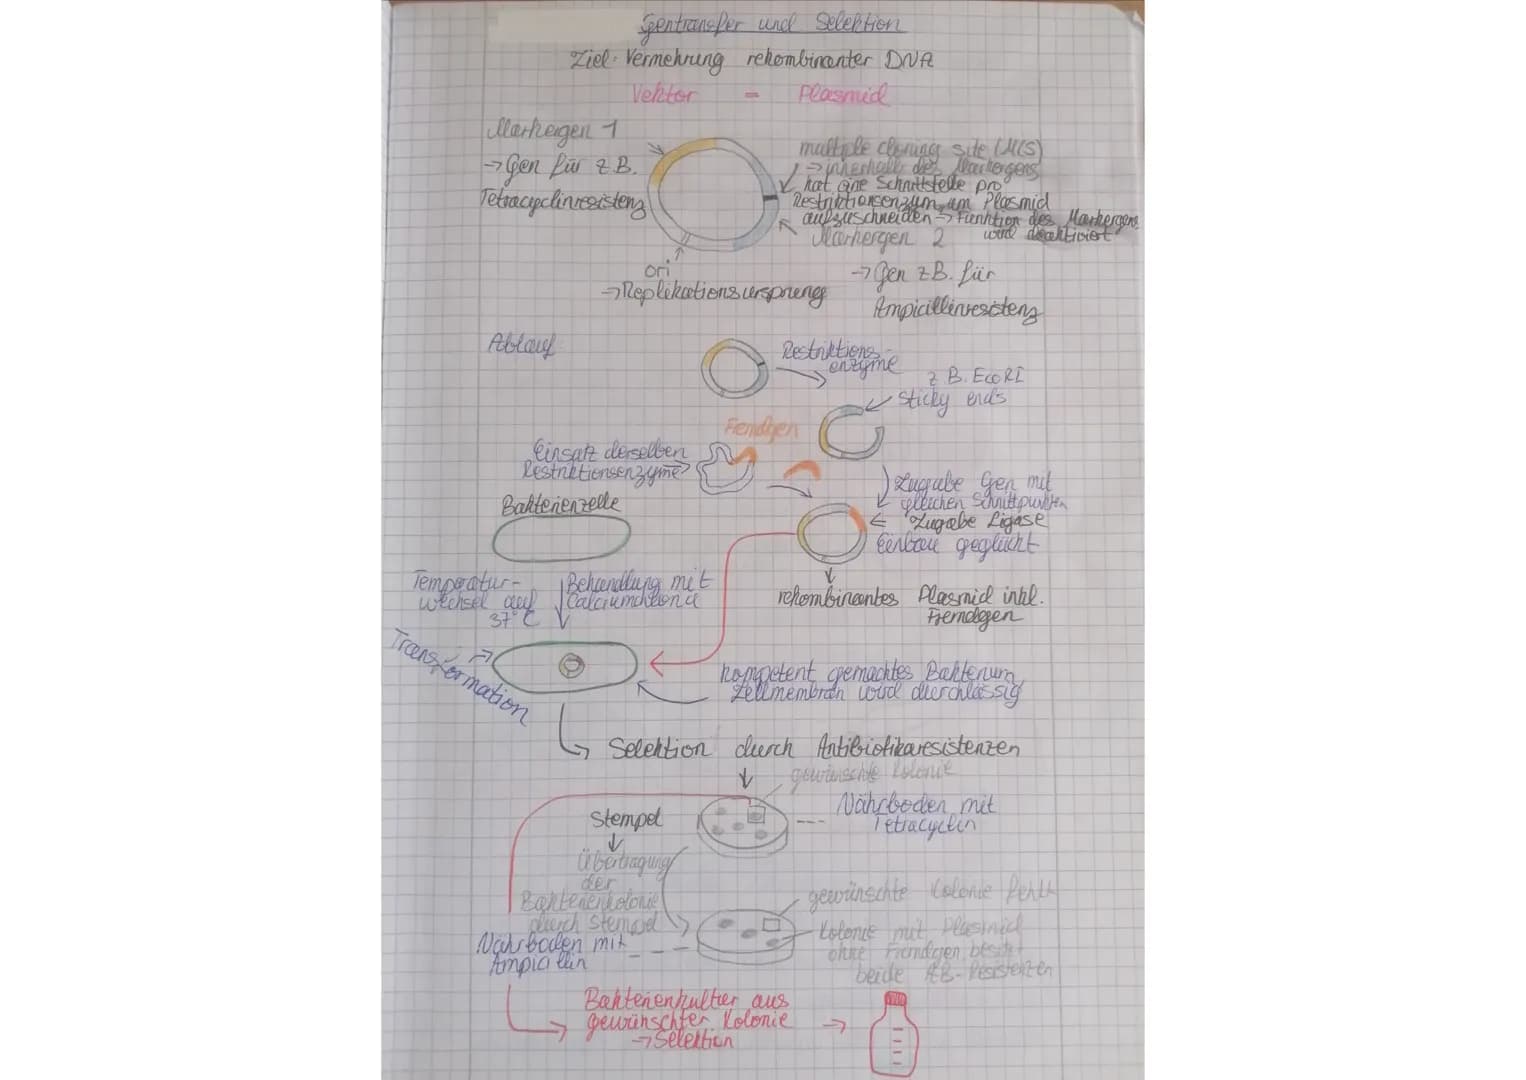 Gentransfer und Selektion
Ziel: Vermehrung rekombinanter DNA
Vektor = Plasmid
Markergen 1
→ Gen für z.B.
Tetracyclinresistenz
multiple cloning site (MCS)
→ innerhalb des Markergens
hat eine Schnittstelle pro
Restriktionsenzym, um Plasmid
aufzuschneiden → Funktion des Markergens
wird deaktiviert
Markergen 2
→ Gen z.B. für
Ampicillinresistenz
ori
→ Replikationsursprung
Ablauf
Restriktions-
enzyme
z.B. EcoRI
Sticky ends
Fremdgen
Einsatz derselben
Restriktionsenzyme
Zugabe Gen mit
gleichen Schnittpunkten
Zugabe Ligase
Einbau geglückt
Bakterienzelle
rekombinantes Plasmid inkl.
Fremdgen
Temperatur-
wechsel auf
37°C
Behandlung mit
Calciumchlorid
Transformation
kompetent gemachtes Bakterium,
Zellmembran wird durchlässig
Selektion durch Antibiotikaresistenzen
gewünschte Kolonie
Nährboden mit
Tetracyclin
Stempel
Übertragung
der
Bakterienkolonie
durch Stempel
gewünschte Kolonie fehlt
Kolonie mit Plasmid
ohne Fremdgen besitzt
beide AB-Resistenzen
Nährboden mit
Ampicillin
Bakterienkultur aus
gewünschter Kolonie
→ Selektion